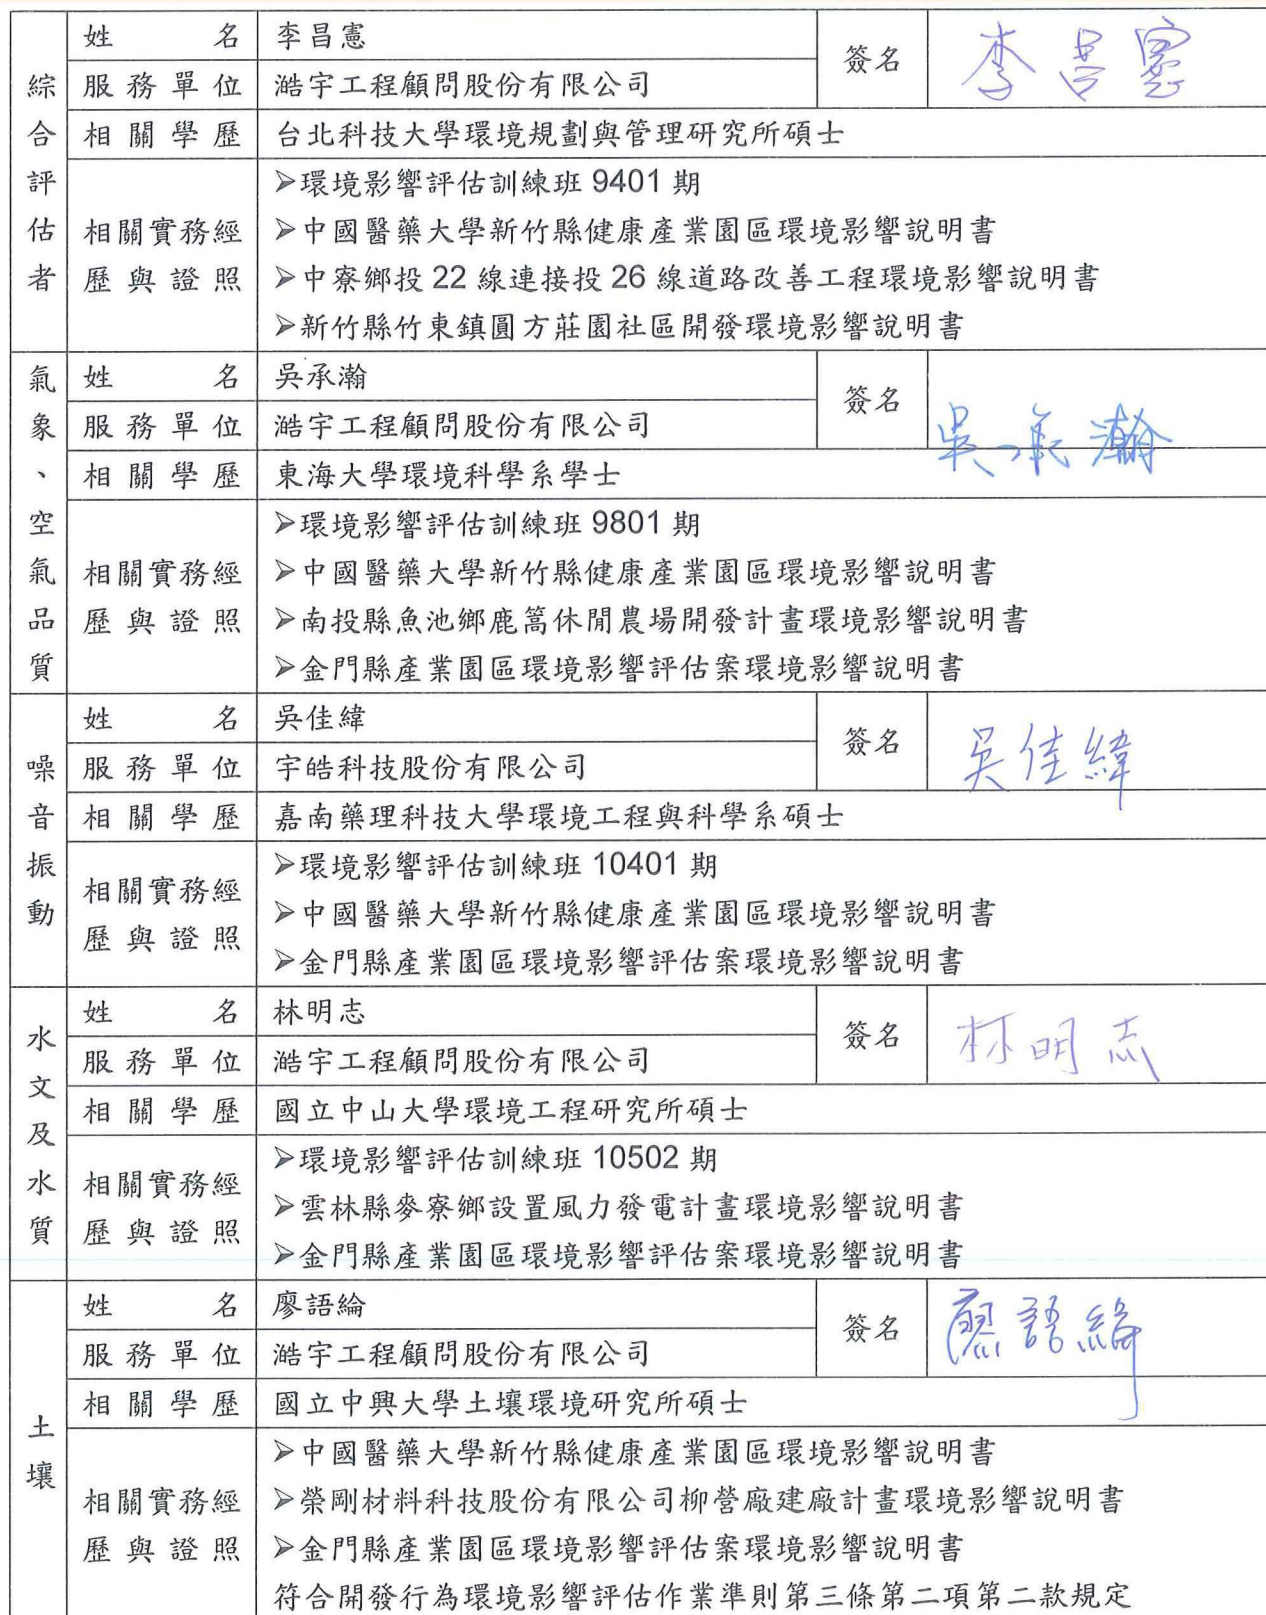 綜合評估者
姓名 李昌憲 簽名 李昌憲
服務單位 澔宇工程顧問股份有限公司
相關學歷 台北科技大學環境規劃與管理研究所碩士
相關實務經歷與證照
➢環境影響評估訓練班 9401 期
➢中國醫藥大學新竹縣健康產業園區環境影響說明書
➢中寮鄉投 22 線連接投 26 線道路改善工程環境影響說明書
➢新竹縣竹東鎮圓方莊園社區開發環境影響說明書
氣象、空氣品質
姓名 吳承瀚 簽名 吳承瀚
服務單位 澔宇工程顧問股份有限公司
相關學歷 東海大學環境科學系學士
相關實務經歷與證照
➢環境影響評估訓練班 9801 期
➢中國醫藥大學新竹縣健康產業園區環境影響說明書
➢南投縣魚池鄉鹿篙休閒農場開發計畫環境影響說明書
➢金門縣產業園區環境影響評估案環境影響說明書
噪音振動
姓名 吳佳緯 簽名 吳佳緯
服務單位 宇皓科技股份有限公司
相關學歷 嘉南藥理科技大學環境工程與科學系碩士
相關實務經歷與證照
➢環境影響評估訓練班 10401 期
➢中國醫藥大學新竹縣健康產業園區環境影響說明書
➢金門縣產業園區環境影響評估案環境影響說明書
水文及水質
姓名 林明志 簽名 林明志
服務單位 澔宇工程顧問股份有限公司
相關學歷 國立中山大學環境工程研究所碩士
相關實務經歷與證照
➢環境影響評估訓練班 10502 期
➢雲林縣麥寮鄉設置風力發電計畫環境影響說明書
➢金門縣產業園區環境影響評估案環境影響說明書
土壤
姓名 廖語綸 簽名 廖語綸
服務單位 澔宇工程顧問股份有限公司
相關學歷 國立中興大學土壤環境研究所碩士
相關實務經歷與證照
➢中國醫藥大學新竹縣健康產業園區環境影響說明書
➢榮剛材料科技股份有限公司柳營廠建廠計畫環境影響說明書
➢金門縣產業園區環境影響評估案環境影響說明書
符合開發行為環境影響評估作業準則第三條第二項第二款規定